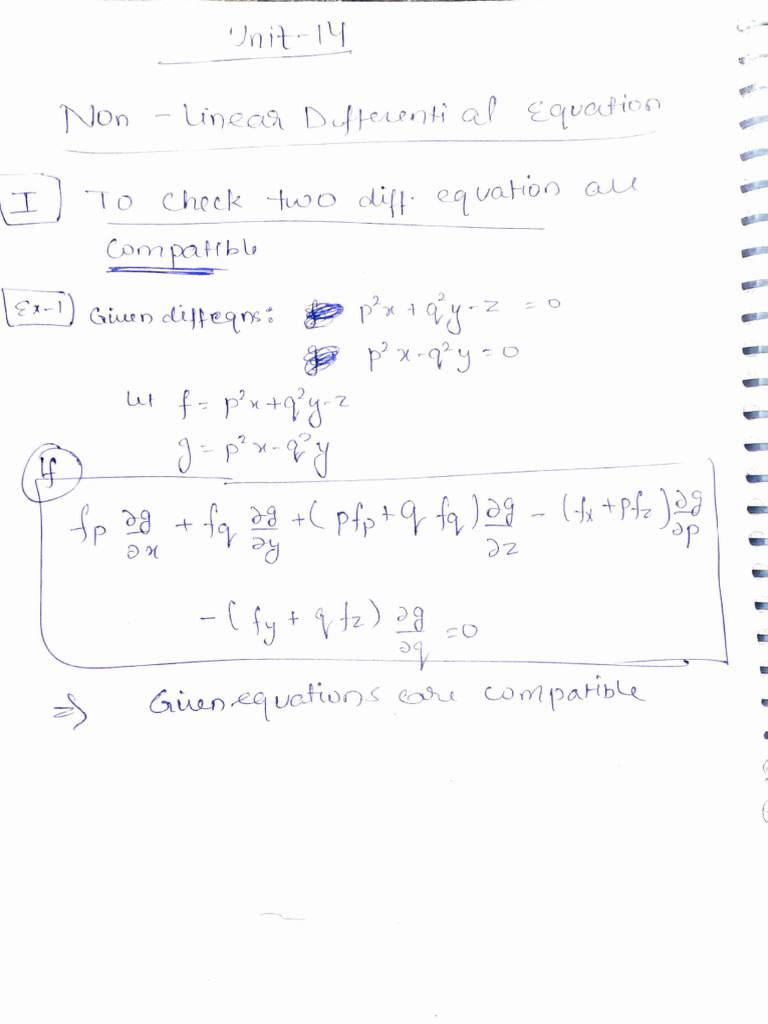 Unit-14
Non-Linear Differential Equation
I To check two diff. equation are
compatible
Ex-1 Given diffeqns: p²x + q²y - z = 0
p²x - q²y = 0
let f = p²x + q²y - z
g = p²x - q²y
If
fp ∂g/∂x + fq ∂g/∂y + (pfp + q fq) ∂g/∂z - (fx + pfz) ∂g/∂p
- (fy + q fz) ∂g/∂q = 0
⇒ Given equations are compatible